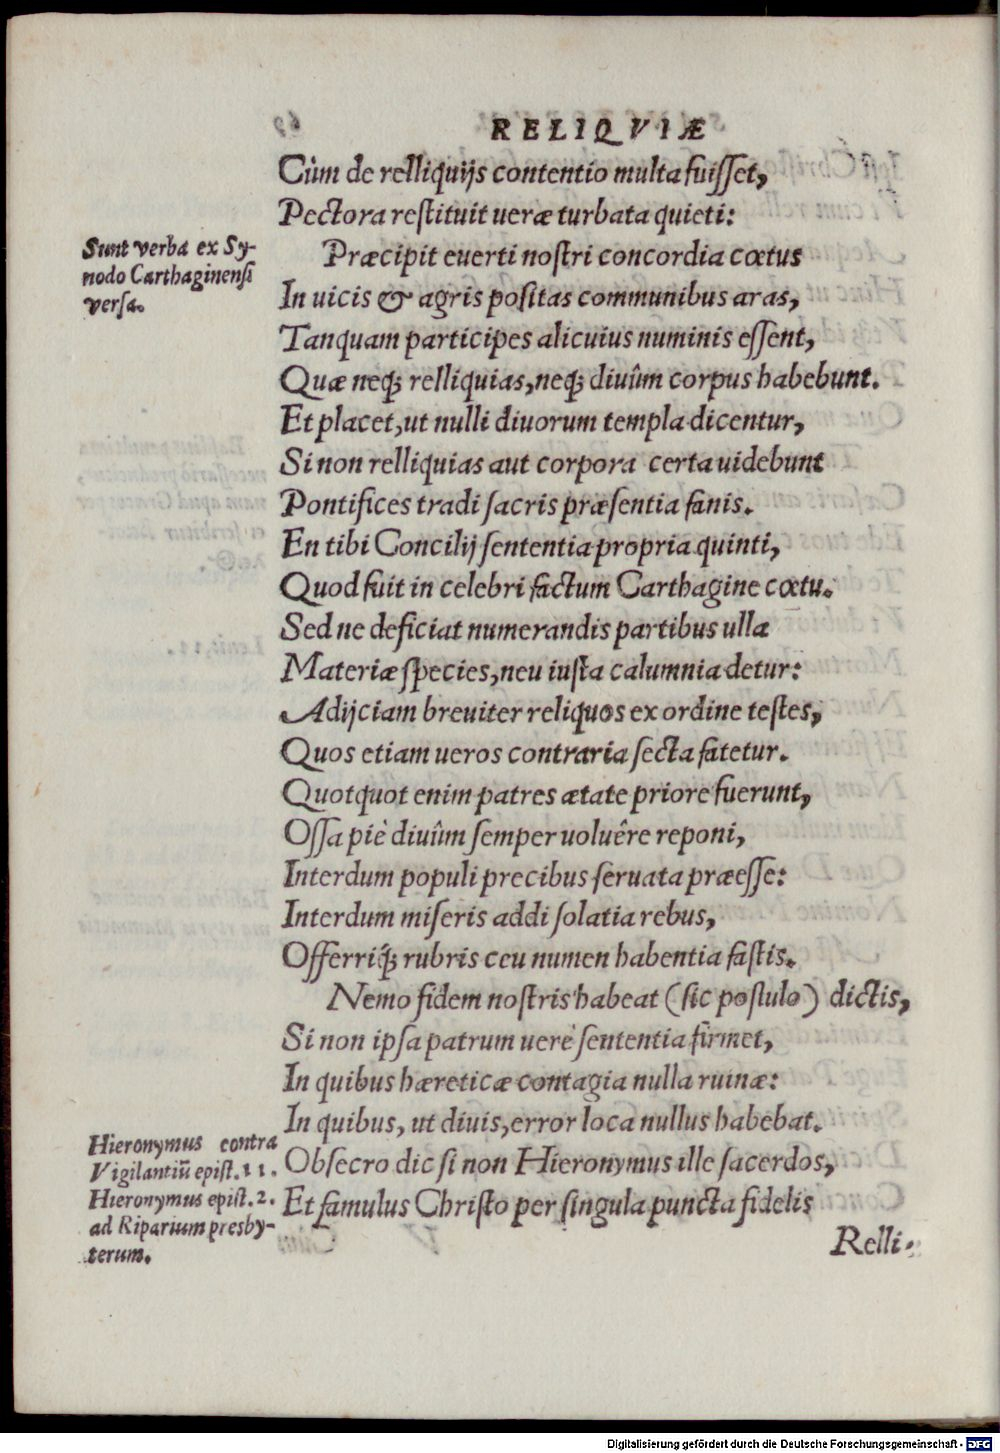 RELIQVIÆ
Cùm de relliquijs contentio multa fuisset,
Pectora restituit ueræ turbata quieti:
Sunt verba ex Sy-
nodo Carthaginensi
versa.
Præcipit euerti nostri concordia cœtus
In uicis & agris positas communibus aras,
Tanquam participes alicuius numinis essent,
Quæ neq; relliquias, neq; diuûm corpus habebunt.
Et placet, ut nulli diuorum templa dicentur,
Si non relliquias aut corpora certa uidebunt
Pontifices tradi sacris præsentia fanis.
En tibi Concilij sententia propria quinti,
Quod fuit in celebri factum Carthagine cœtu.
Sed ne deficiat numerandis partibus ulla
Materiæ species, neu iusta calumnia detur:
Adijciam breuiter reliquos ex ordine testes,
Quos etiam ueros contraria secta fatetur.
Quotquot enim patres ætate priore fuerunt,
Ossa piè diuûm semper uoluêre reponi,
Interdum populi precibus seruata præesse:
Interdum miseris addi solatia rebus,
Offerriq́; rubris ceu numen habentia fastis.
Nemo fidem nostris habeat (sic postulo) dictis,
Si non ipsa patrum uerè sententia firmet,
In quibus hæreticæ contagia nulla ruinæ:
In quibus, ut diuis, error loca nullus habebat.
Hieronymus contra
Vigilantiũ epist. 11.
Hieronymus epist. 2.
ad Riparium presby-
terum.
Obsecro dic si non Hieronymus ille sacerdos,
Et famulus Christo per singula puncta fidelis
Relli-
Digitalisierung gefördert durch die Deutsche Forschungsgemeinschaft - DFG